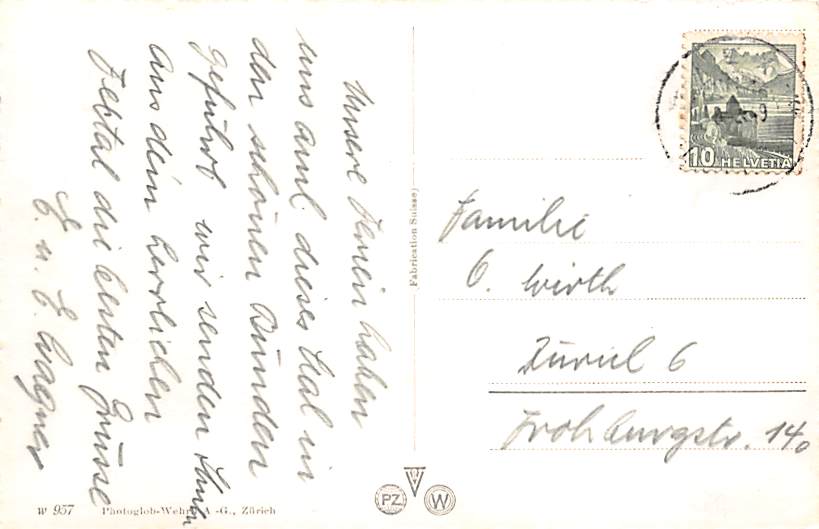 Unsere Ferien haben
uns auch dieses Mal in
den schönen Bünden
geführt wir senden Ihnen
Aus dem herrlichen
die besten Grüsse
E. u. E. Wagner
Familie
O. Wirth
Zürich 6
Frohburgstr. 140
10 HELVETIA
Fabrication Suisse
W 957 Photoglob-Wehrli A-G., Zürich
PZ W